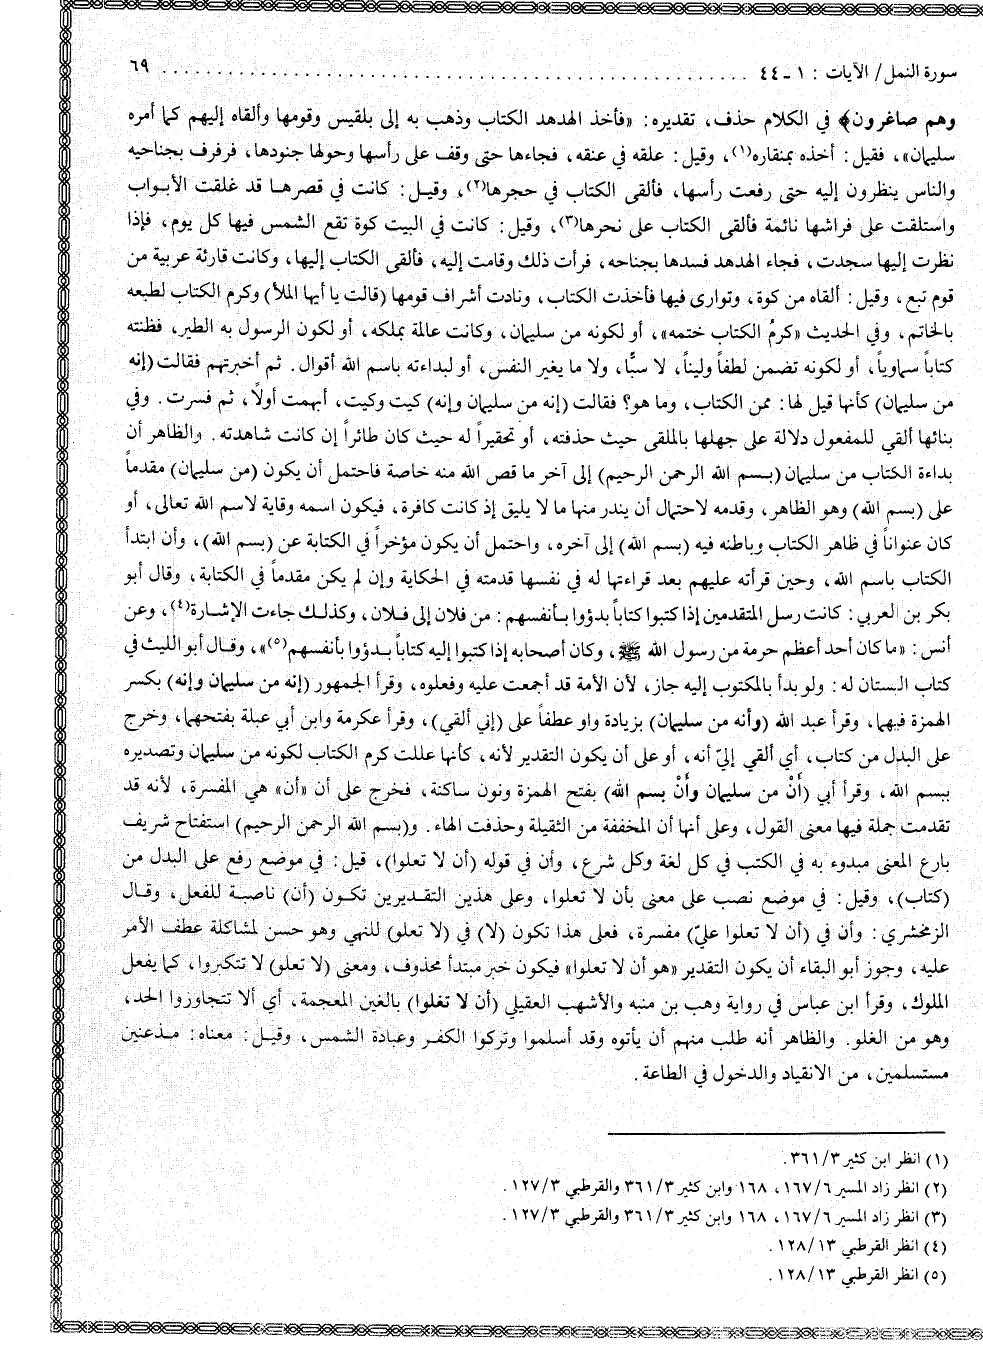 سورة النمل/ الآيات : ١ ـ ٤٤ ................................................ ٦٩
وهم صاغرون﴾ في الكلام حذف، تقديره: «فأخذ الهدهد الكتاب وذهب به إلى بلقيس وقومها وألقاه إليهم كما أمره
سليمان»، فقيل: أخذه بمنقاره(١)، وقيل: علقه في عنقه، فجاءها حتى وقف على رأسها وحولها جنودها، فرفرف بجناحيه
والناس ينظرون إليه حتى رفعت رأسها، فألقى الكتاب في حجرها(٢)، وقيـل: كانت في قصرهـا قد غلقت الأبـواب
واستلقت على فراشها نائمة فألقى الكتاب على نحرها(٣)، وقيل: كانت في البيت كوة تقع الشمس فيها كل يوم، فإذا
نظرت إليها سجدت، فجاء الهدهد فسدها بجناحه، فرأت ذلك وقامت إليه، فألقى الكتاب إليها، وكانت قارئة عربية من
قوم تبع، وقيل: ألقاه من كوة، وتوارى فيها فأخذت الكتاب، ونادت أشراف قومها (قالت يا أيها الملأ) وكرم الكتاب لطبعه
بالخاتم، وفي الحديث «كرمُ الكتاب ختمه»، أو لكونه من سليمان، وكانت عالمة بملكه، أو لكون الرسول به الطير، فظنته
كتاباً سماوياً، أو لكونه تضمن لطفاً وليناً، لا سبًّا، ولا ما يغير النفس، أو لبداءته باسم الله أقوال. ثم أخبرتهم فقالت (إنه
من سليمان) كأنها قيل لها: ممن الكتاب، وما هو؟ فقالت (إنه من سليمان وإنه) كيت وكيت، أبهمت أولاً، ثم فسرت. وفي
بنائها ألقي للمفعول دلالة على جهلها بالملقى حيث حذفته، أو تحقيراً له حيث كان طائراً إن كانت شاهدته. والظاهر أن
بداءة الكتاب من سليمان (بـسم الله الرحمن الرحيم) إلى آخر ما قص الله منه خاصة فاحتمل أن يكون (من سليمان) مقدماً
على (بسم الله) وهو الظاهر، وقدمه لاحتمال أن يندر منها ما لا يليق إذ كانت كافرة، فيكون اسمه وقاية لاسم الله تعالى، أو
كان عنواناً في ظاهر الكتاب وباطنه فيه (بسم الله) إلى آخره، واحتمل أن يكون مؤخراً في الكتابة عن (بسم الله)، وأن ابتدأ
الكتاب باسم الله، وحين قرأته عليهم بعد قراءتها له في نفسها قدمته في الحكاية وإن لم يكن مقدماً في الكتابة، وقال أبو
بكر بن العربي: كانت رسل المتقدمين إذا كتبوا كتاباً بدؤوا بـأنفسهم: من فلان إلى فـلان، وكذلـك جاءت الإشـارة(٤)، وعن
أنس: «ما كان أحد أعظم حرمة من رسول الله ﷺ، وكان أصحابه إذا كتبوا إليه كتاباً بـدؤوا بأنفسهم(٥)»، وقـال أبو الليث في
كتاب الستان له: ولو بدأ بالمكتوب إليه جاز، لأن الأمة قد أجمعت عليه وفعلوه، وقرأ الجمهور (إنه من سليمان وإنه) بكسر
الهمزة فيهما، وقرأ عبد الله (وأنه من سليمان) بزيادة واو عطفاً على (إني ألقي)، وقرأ عكرمة وابن أبي عبلة بفتحهما، وخرج
على البدل من كتاب، أي ألقي إليّ أنه، أو على أن يكون التقدير لأنه، كأنها عللت كرم الكتاب لكونه من سليمان وتصديره
ببسم الله، وقرأ أبي (أَنْ من سليمان وأَنْ بسم الله) بفتح الهمزة ونون ساكنة، فخرج على أن «أن» هي المفسرة، لأنه قد
تقدمت جملة فيها معنى القول، وعلى أنها أن المخففة من الثقيلة وحذفت الهاء. و(بسم الله الرحمن الرحيم) استفتاح شريف
بارع المعنى مبدوء به في الكتب في كل لغة وكل شرع، وأن في قوله (أن لا تعلوا)، قيل: في موضع رفع على البدل من
(كتاب)، وقيل: في موضع نصب على معنى بأن لا تعلوا، وعلى هذين التقـديرين تكـون (أن) ناصبـة للفعل، وقـال
الزمخشري: وأن في (أن لا تعلوا عليّ) مفسرة، فعلى هذا تكون (لا) في (لا تعلو) للنهي وهو حسن لمشاكلة عطف الأمر
عليه، وجوز أبو البقاء أن يكون التقدير «هو أن لا تعلوا» فيكون خبر مبتدأ محذوف، ومعنى (لا تعلو) لا تتكبروا، كما يفعل
الملوك، وقرأ ابن عباس في رواية وهب بن منبه والأشهب العقيلي (أن لا تغلوا) بالغين المعجمة، أي ألا تتجاوزوا الحد،
وهو من الغلو. والظاهر أنه طلب منهم أن يأتوه وقد أسلموا وتركوا الكفـر وعبادة الشمس، وقيـل: معناه: مـذعنين
مستسلمين، من الانقياد والدخول في الطاعة.
(١) انظر ابن كثير ٣٦١/٣.
(٢) انظر زاد المسير ١٦٧/٦، ١٦٨ وابن كثير ٣٦١/٣ والقرطبي ١٢٧/٣.
(٣) انظر زاد المسير ١٦٧/٦، ١٦٨ وابن كثير ٣٦١/٣ والقرطبي ١٢٧/٣.
(٤) انظر القرطبي ١٢٨/١٣.
(٥) انظر القرطبي ١٢٨/١٣.